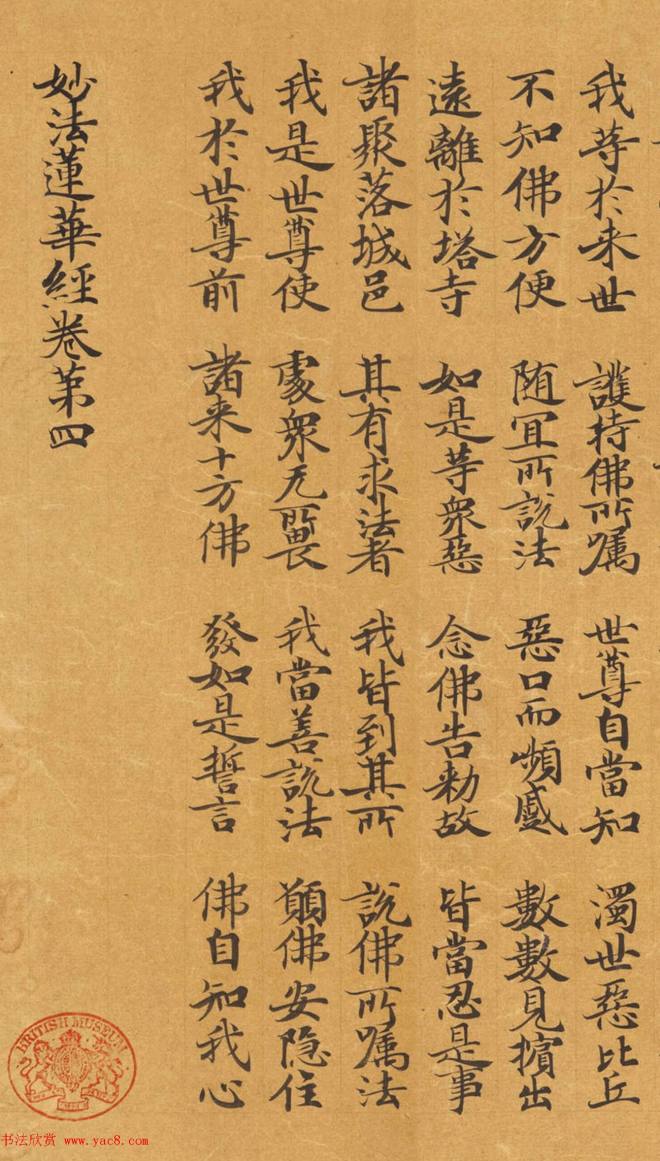 我等於来世 護持佛所嘱 世尊自當知 濁世惡比丘
不知佛方便 随宜所說法 惡口而頻蹙 數數見擯出
遠離於塔寺 如是等衆惡 念佛告勅故 皆當忍是事
諸聚落城邑 其有求法者 我皆到其所 說佛所嘱法
我是世尊使 處衆无所畏 我當善說法 願佛安隐住
我於世尊前 諸来十方佛 發如是誓言 佛自知我心
妙法蓮華經卷第四
BRITISH MUSEUM
书法欣赏 www.yac8.com